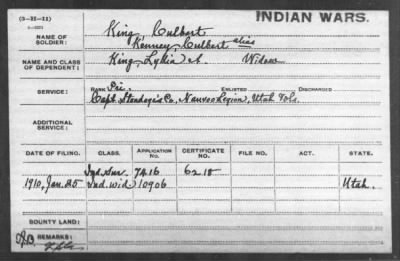 (3-III-11)
INDIAN WARS.
NAME OF SOLDIER:
King, Culbert
Kenney, Culbert alias
NAME AND CLASS OF DEPENDENT:
King, Lydia A. Widow
SERVICE:
RANK ENLISTED DISCHARGED
Pri.
Capt. Co., Nauvoo Legion, Utah Vols.
ADDITIONAL SERVICE:
DATE OF FILING. CLASS. APPLICATION No. CERTIFICATE No. FILE NO. ACT. STATE.
Ind. Sur. 7416 6218
1910, Jan. 25 Ind. Wid. 10906 Utah.
BOUNTY LAND:
REMARKS: